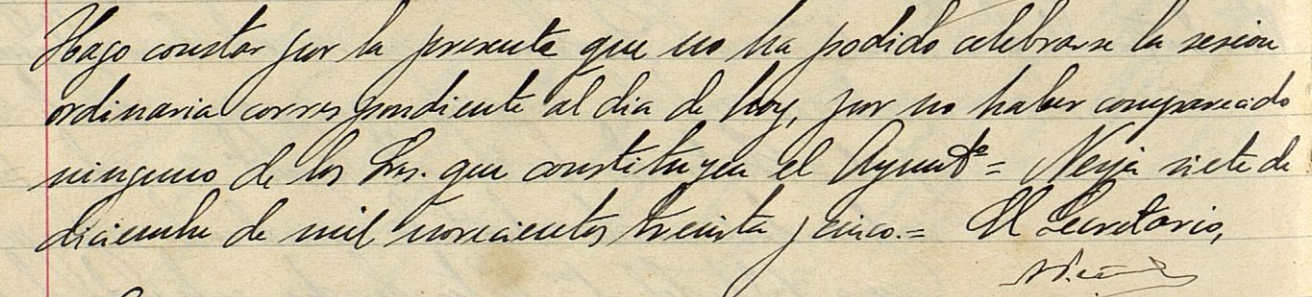 Hago constar por la presente que no ha podido celebrarse la sesion
ordinaria correspondiente al dia de hoy, por no haber comparecido
ninguno de los Srs. que constituyen el Ayuntº = Nerja siete de
diciembre de mil novecientos treinta y cinco.= El Secretario,